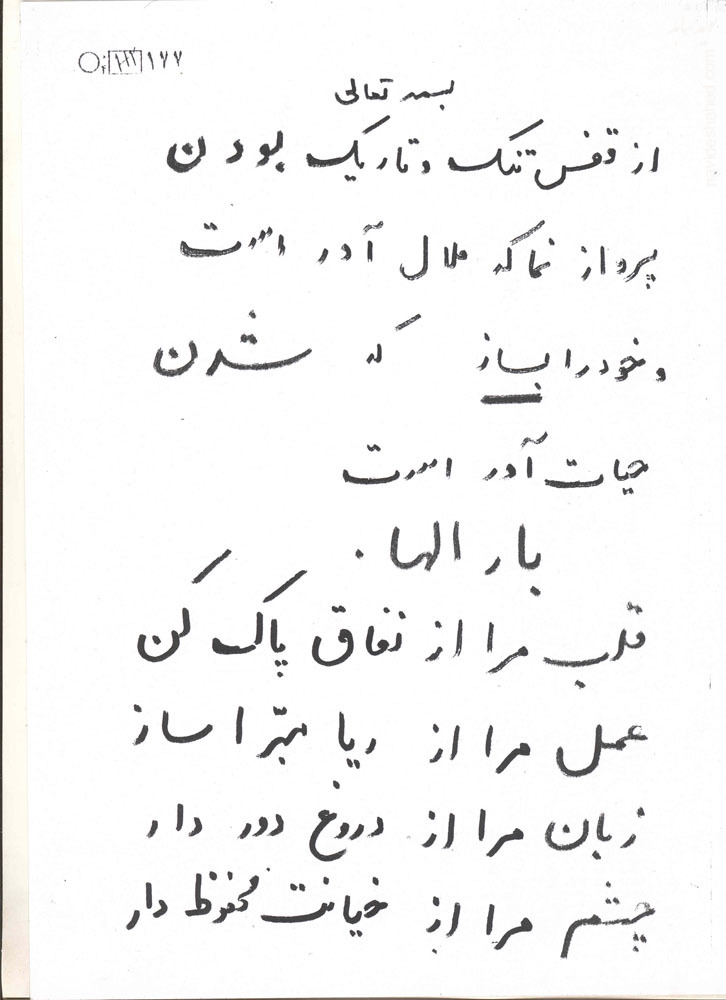 ۱۷۷
بسمه تعالی
از قفس تنگ و تاریک بودن
پرواز نما که ملال آور است
و خود را بساز که شدن
حیات آور است
بار الها.
قلب مرا از نفاق پاک کن
عمل مرا از ریا مبّرا ساز
زبان مرا از دروغ دور دار
چشم مرا از خیانت محفوظ دار